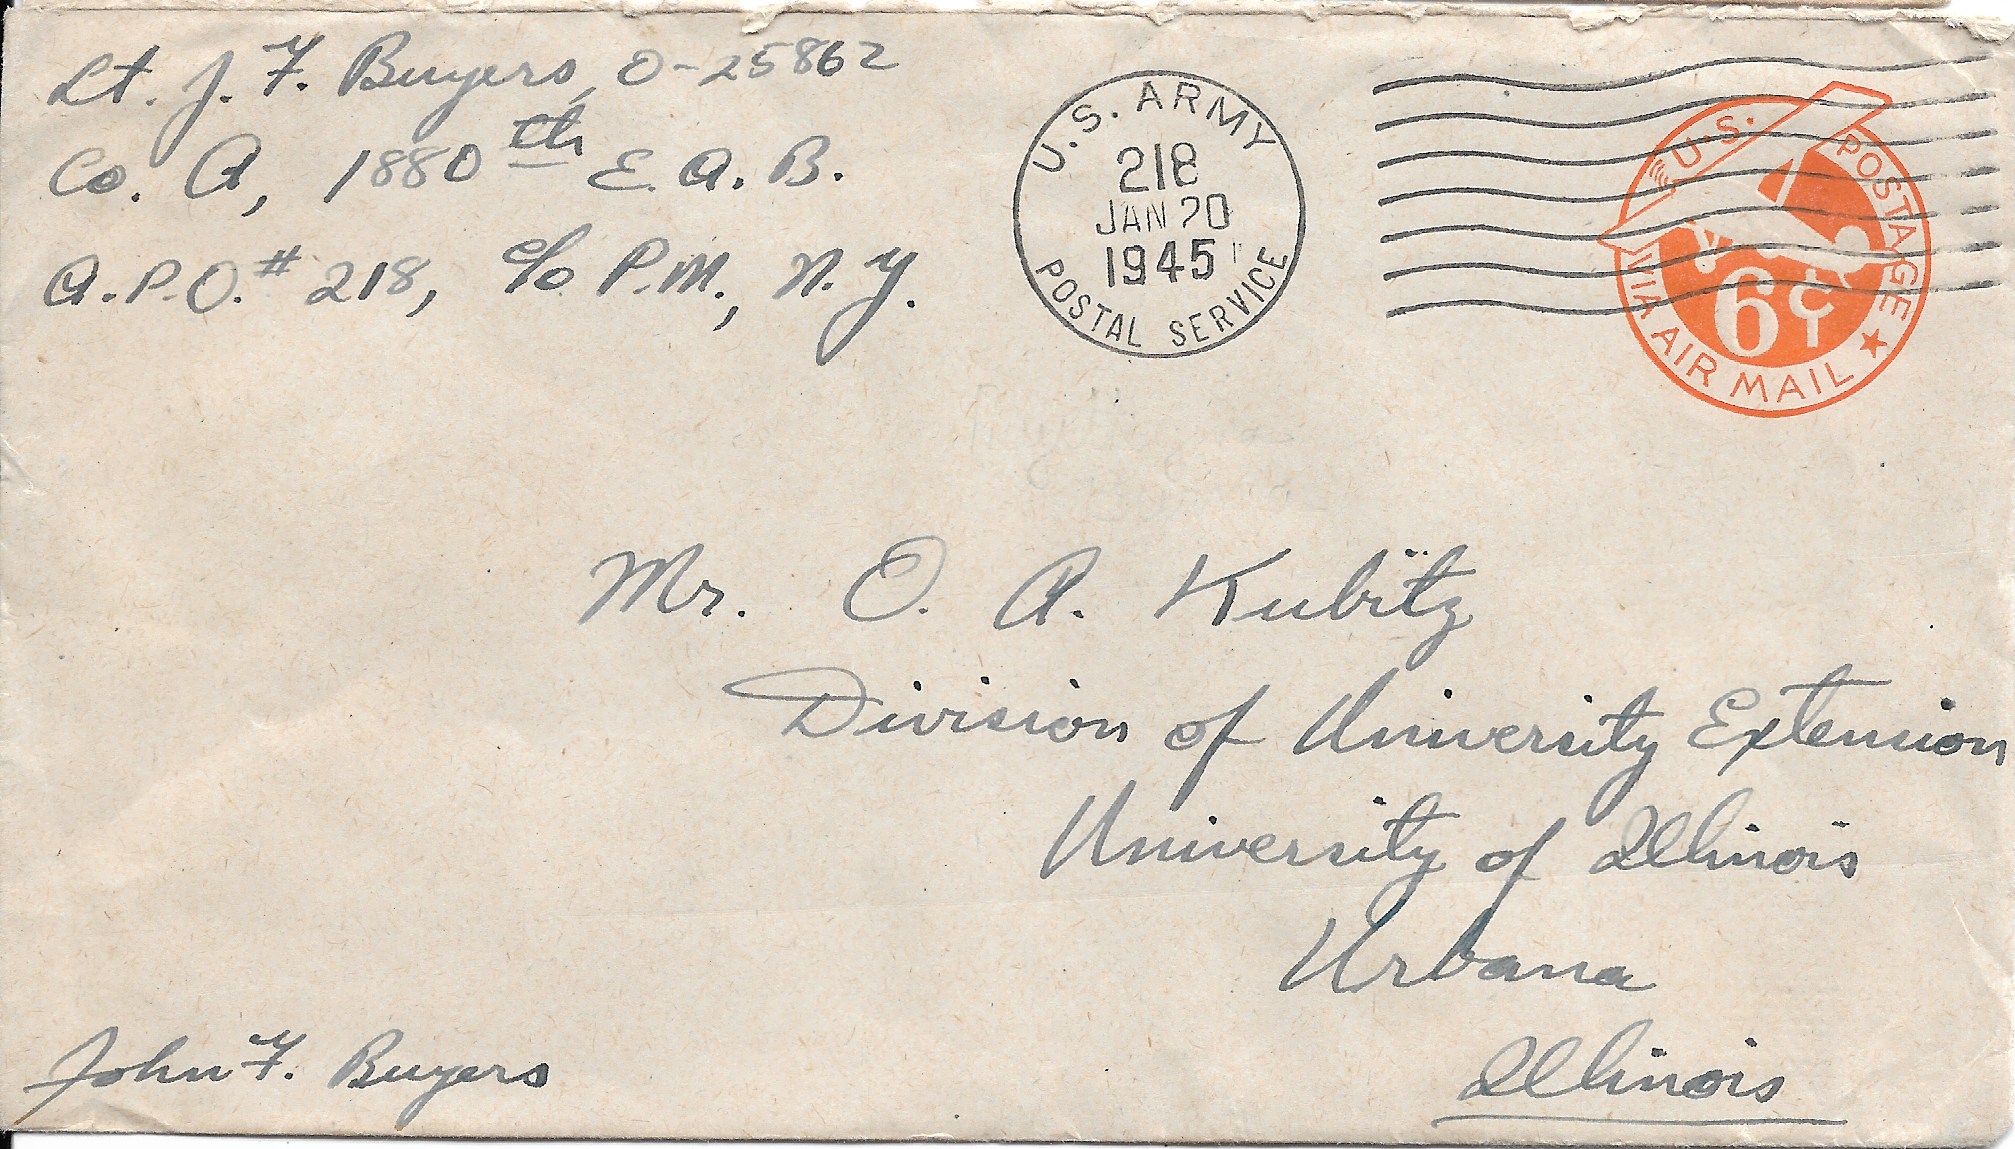 Lt. J. F. Buyers, O-25862
Co. A, 1880th E. A. B.
A.P.O. # 218, c/o P.M., N.Y.
U.S. ARMY
218
JAN 20
1945
POSTAL SERVICE
U.S. POSTAGE
6¢
VIA AIR MAIL
Mr. O. A. Kubitz
Division of University Extension
University of Illinois
Urbana
Illinois
John F. Buyers